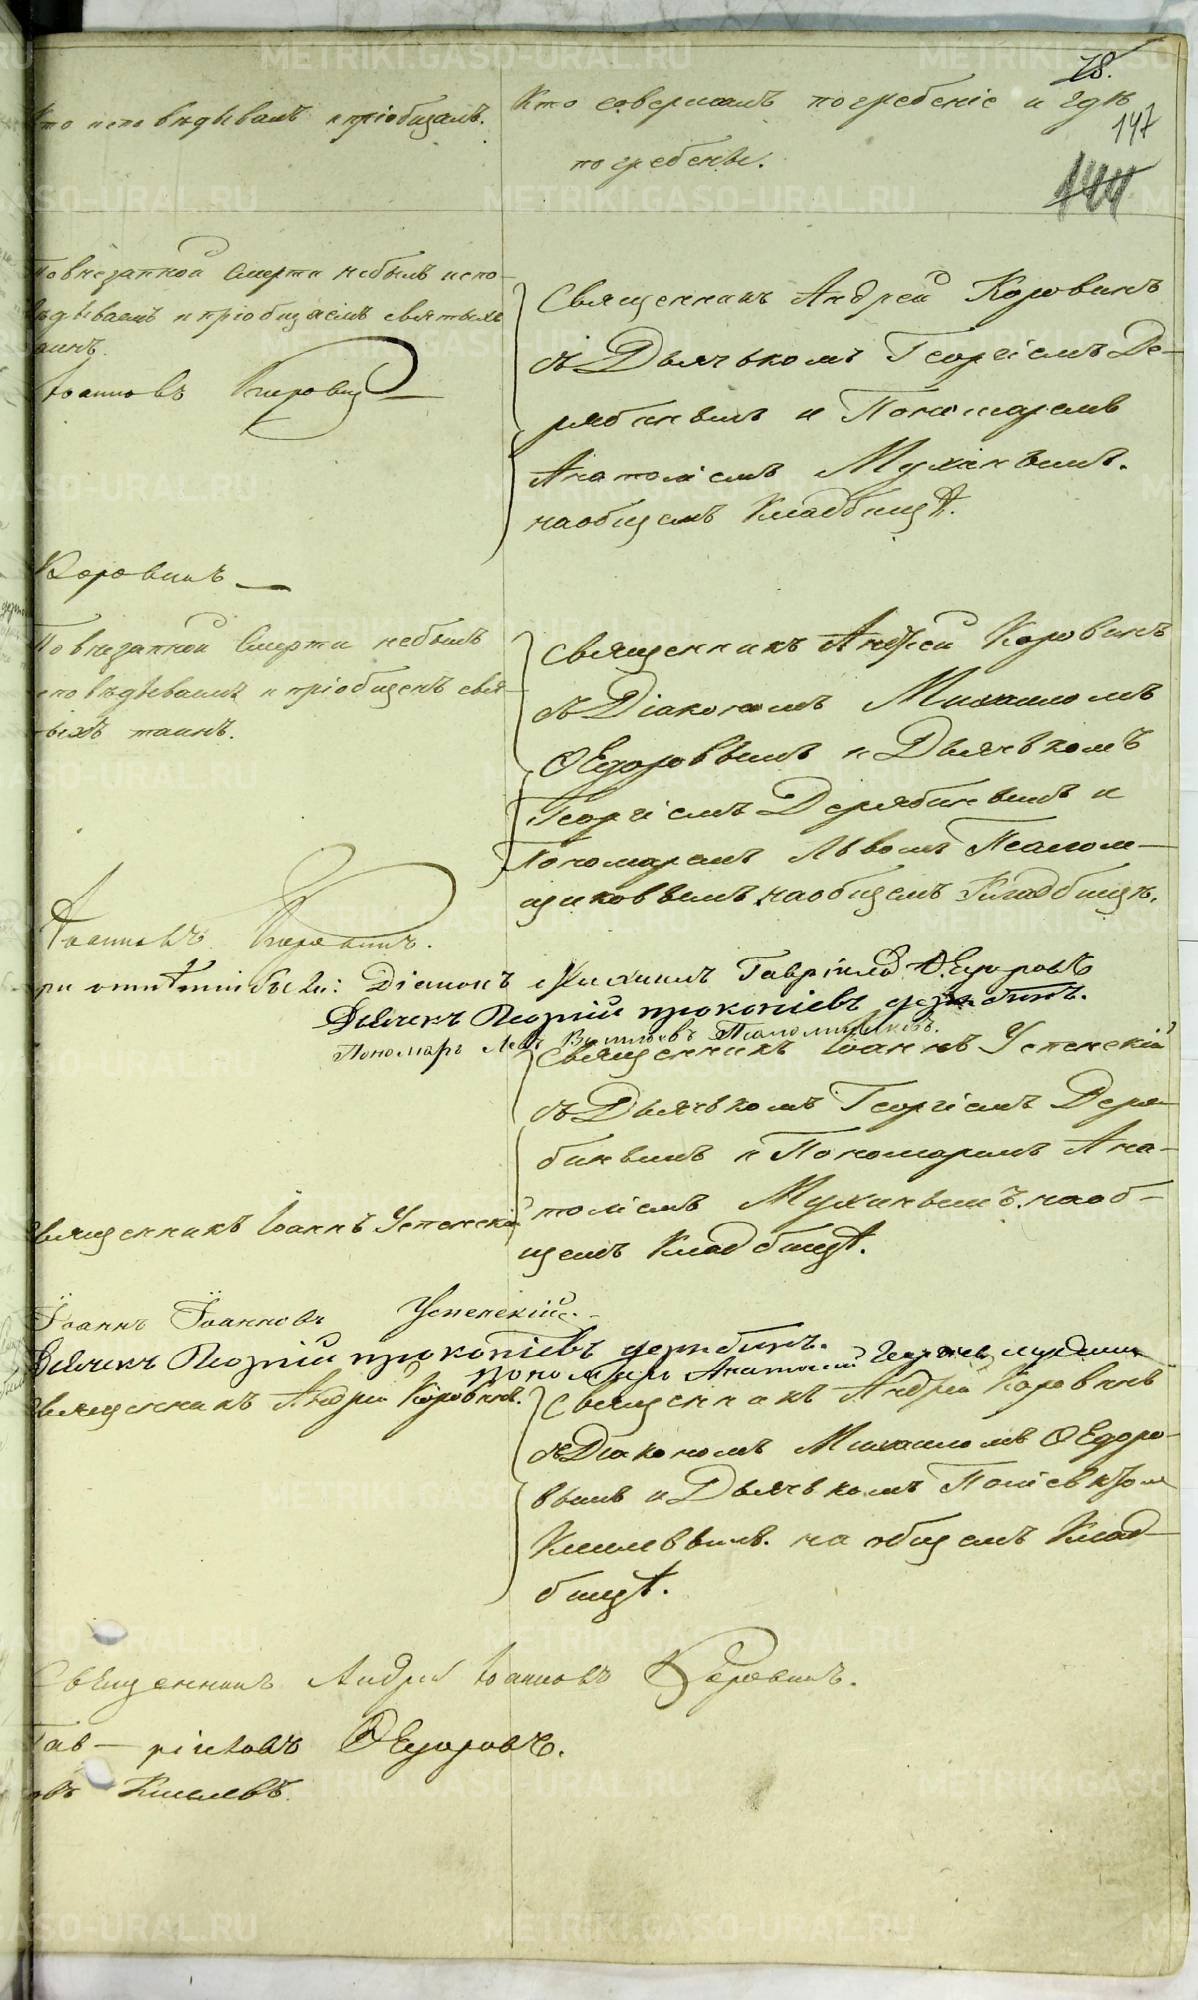 78.
Кто исповѣдывалъ и пріобщалъ.
Кто совершалъ погребеніе и гдѣ
погребены.
147
144
По внезапной смерти небылъ испо-
вѣдываемъ и пріобщаемъ святыхъ
таинъ.
Іоанновъ Коровинъ
Священникъ Андрей Коровинъ
съ Дьячькомъ Георгіемъ Де-
рябинымъ и Пономаремъ
Анатоліемъ Мухинымъ.
на общемъ Кладбищѣ.
Коровинъ
По внезапной Смерти небылъ
исповѣдываемъ и пріобщенъ свя-
тыхъ таинъ.
Священникъ Андрей Коровинъ
съ Діакономъ Михаиломъ
Ѳедоровымъ и Дьячькомъ
Георгіемъ Дерябинымъ и
Пономаремъ Львомъ Псаломщ-
щиковымъ, на общемъ Кладбищѣ.
Іоанновъ Коровинъ.
при отпѣтіи были: Діаконъ Михаилъ Гавріиловъ Ѳедоровъ
Дьячекъ Георгій Прокопіевъ Дерябинъ.
Пономарь Левъ Васильевъ Псаломщиковъ.
Священникъ Іоаннъ Успенскій
съ Дьячькомъ Георгіемъ Деря-
бинымъ и Пономаремъ Ана-
толіемъ Мухинымъ. на об-
щемъ Кладбищѣ.
Священникъ Іоаннъ Успенскій
Іоаннъ Іоанновъ Успенскій.
Дьячекъ Георгій Прокопіевъ Дерябинъ.
Пономарь Анатолій Георгіевъ Мухинъ
Священникъ Андрей Коровинъ.
Священникъ Андрей Коровинъ
съ Діакономъ Михаиломъ Ѳедоро-
вымъ и Дьячькомъ
на общемъ Клад-
бищѣ.
Священникъ Андрей Іоанновъ Коровинъ.
Гав-ріиловъ Ѳедоровъ.
METRIKI.GASO-URAL.RU